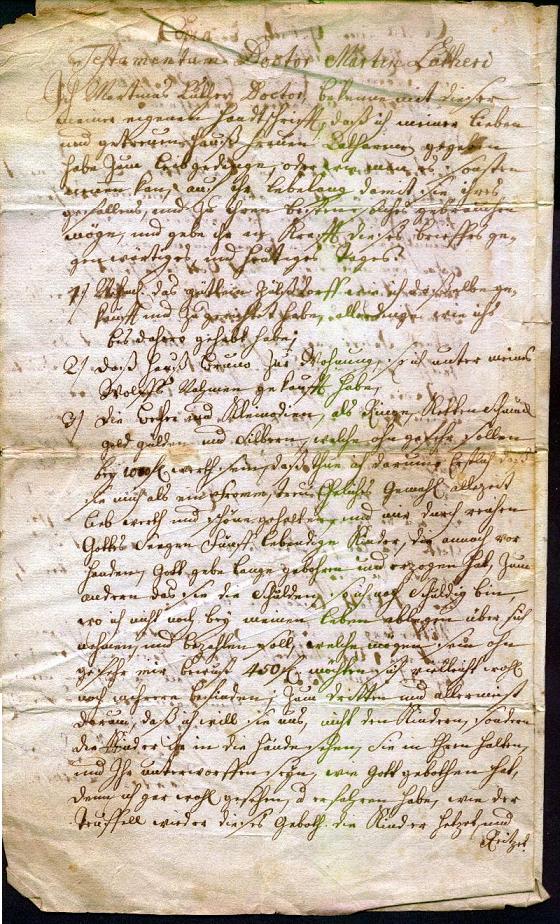 Copia
Testamentum Doctor Martin Lutheri
Ich Martinus Luther Doctor, bekenne mit dieser
meiner eigenen Handtschrifft, daß ich meiner lieben
und getreuen Hauß frauen Catharinen gegeben
habe zum Leibgedinge, oder wie man es sonsten
nennen kan, auf ihr lebelang damit sie ihres
gefallens, und zu ihren besten solches gebrauchen
möge, und gebe ihr in Krafft dieses brieffes ge-
genwärtiges, und heutiges Tages
1) das güttlein Zülßdorff, wie ich dasselbe ge-
kaufft und zugerichtet habe, allerdinge wie ichs
bis dahero gehabt habe,
2) daß Hauß Bruno zur Wohnung, so ich unter meines
Wolffs Nahmen gekaufft habe,
3) die Becher und Kleinodien, als Ringe, Ketten,
geld gülden und Silbern, welche ohn gefehr sollen
bey 1000 fl werth sein, daß thue ich darumb, Erstlich daß
sie mich als ein fromm, treu Ehelichs Gemahl allezeit
lieb werth und schöne gehalten, und mir durch reichen
Gottes Seegen Fünff lebendige Kinder, die annoch vor
handen, Gott gebe lange gebohren und erzogen hat, Zum
andern das sie die Schulden, so ich noch schuldig bin,
wo ich nicht noch bey meinen leben ablegen über sich
nehmen, und bezahlen soll, welche mögen sein ohn
gefehr mir bewust 450 fl, möchten sich vielleicht wohl
noch mehrere befinden, Zum dritten und allermeist
darum, daß ich will sie muß, nicht den Kindern, sondern
die Kinder ihr in die Hände sehen, sie in Ehren halten,
und Ihr unterworffen seyn, wie Gott gebothen hat,
denn ich gar wohl gesehen, und erfahren habe, wie der
Teuffell wieder dieses Geboth die Kinder hetzet, und
Reitzet